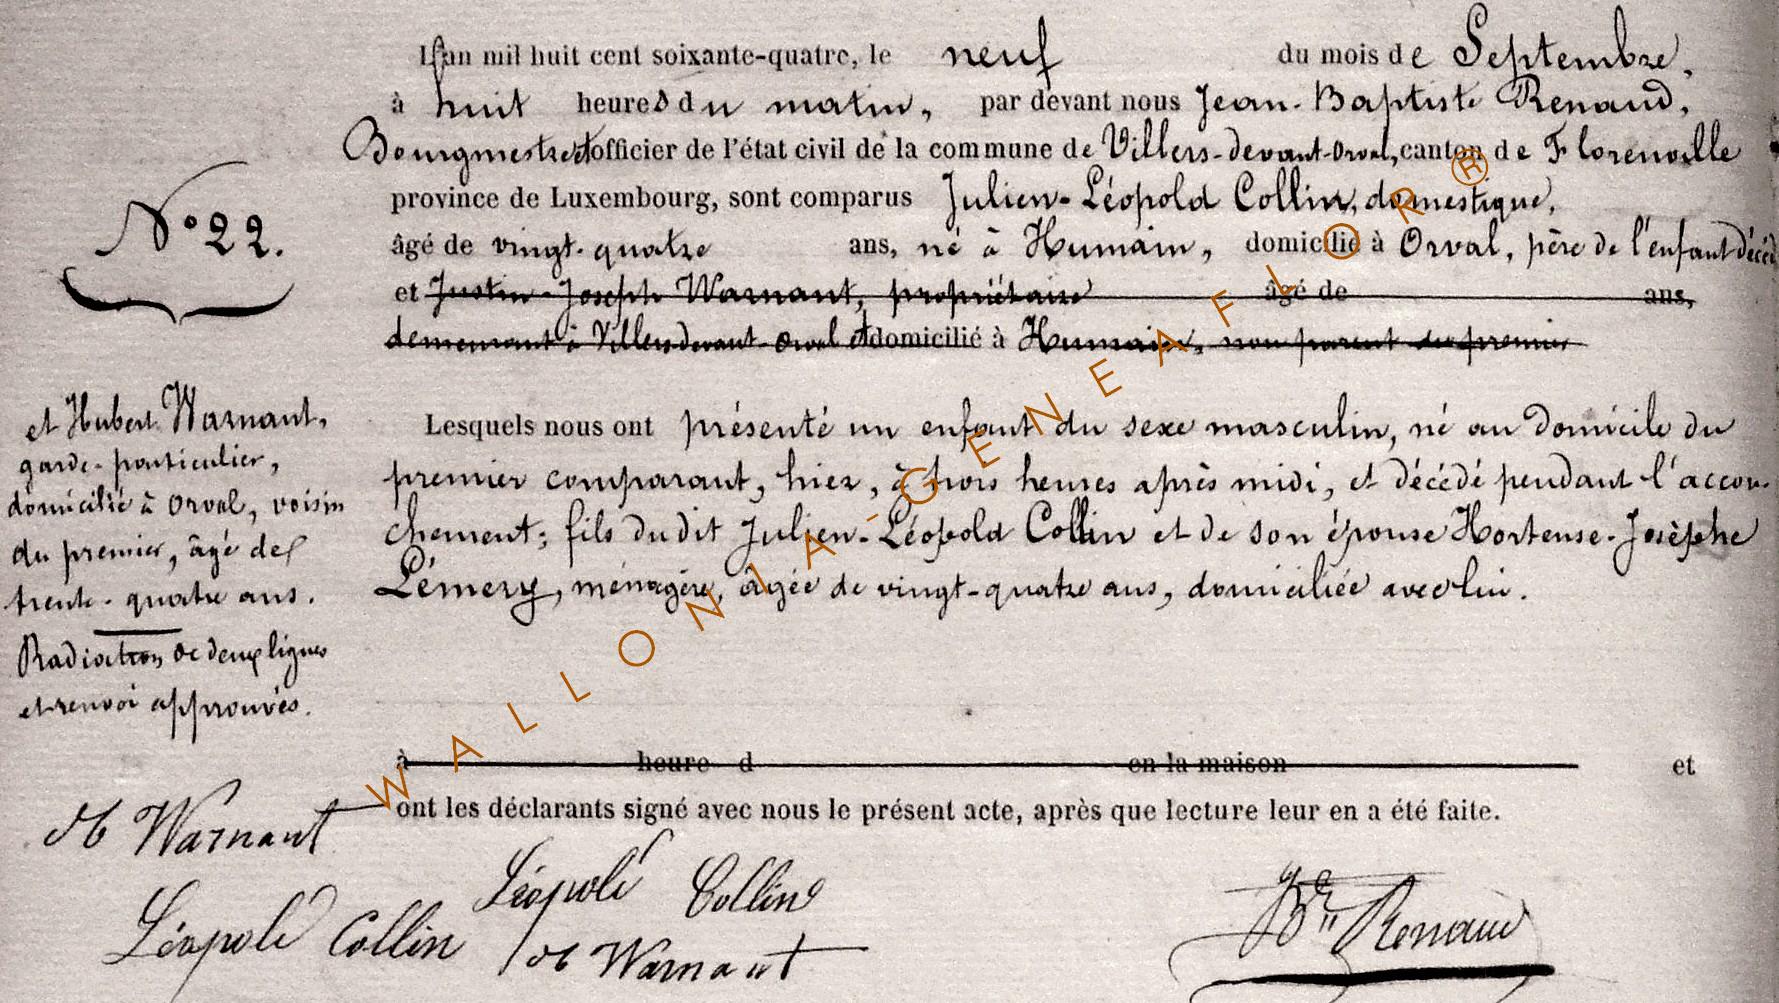 L'an mil huit cent soixante-quatre, le neuf du mois de Septembre,
à huit heures du matin, par devant nous Jean-Baptiste Renaud,
Bourgmestre et officier de l'état civil de la commune de Villers-devant-Orval, canton de Florenville
province de Luxembourg, sont comparus Julien-Léopold Collin, domestique,
N° 22.
âgé de vingt-quatre ans, né à Humain, domicilié à Orval, père de l'enfant décédé
et Justin-Joseph Warnant, propriétaire âgé de ans,
demeurant à Villers-devant-Orval et domicilié à Humain, non parent du premier
et Hubert Warnant,
garde-particulier,
domicilié à Orval, voisin
du premier, âgé de
trente-quatre ans.
Radiation de deux lignes
et renvoi approuvés.
Lesquels nous ont présenté un enfant du sexe masculin, né au domicile du
premier comparant, hier, à trois heures après midi, et décédé pendant l'accou-
chement; fils du dit Julien-Léopold Collin et de son épouse Hortense-Josèphe
Lémery, ménagère, âgée de vingt-quatre ans, domiciliée avec lui.
à heure d en la maison et
ont les déclarants signé avec nous le présent acte, après que lecture leur en a été faite.
H Warnant
Léopold Collin
Léopold Collin
H Warnant
Renaud
WALLONIA-GENEAFLOR®